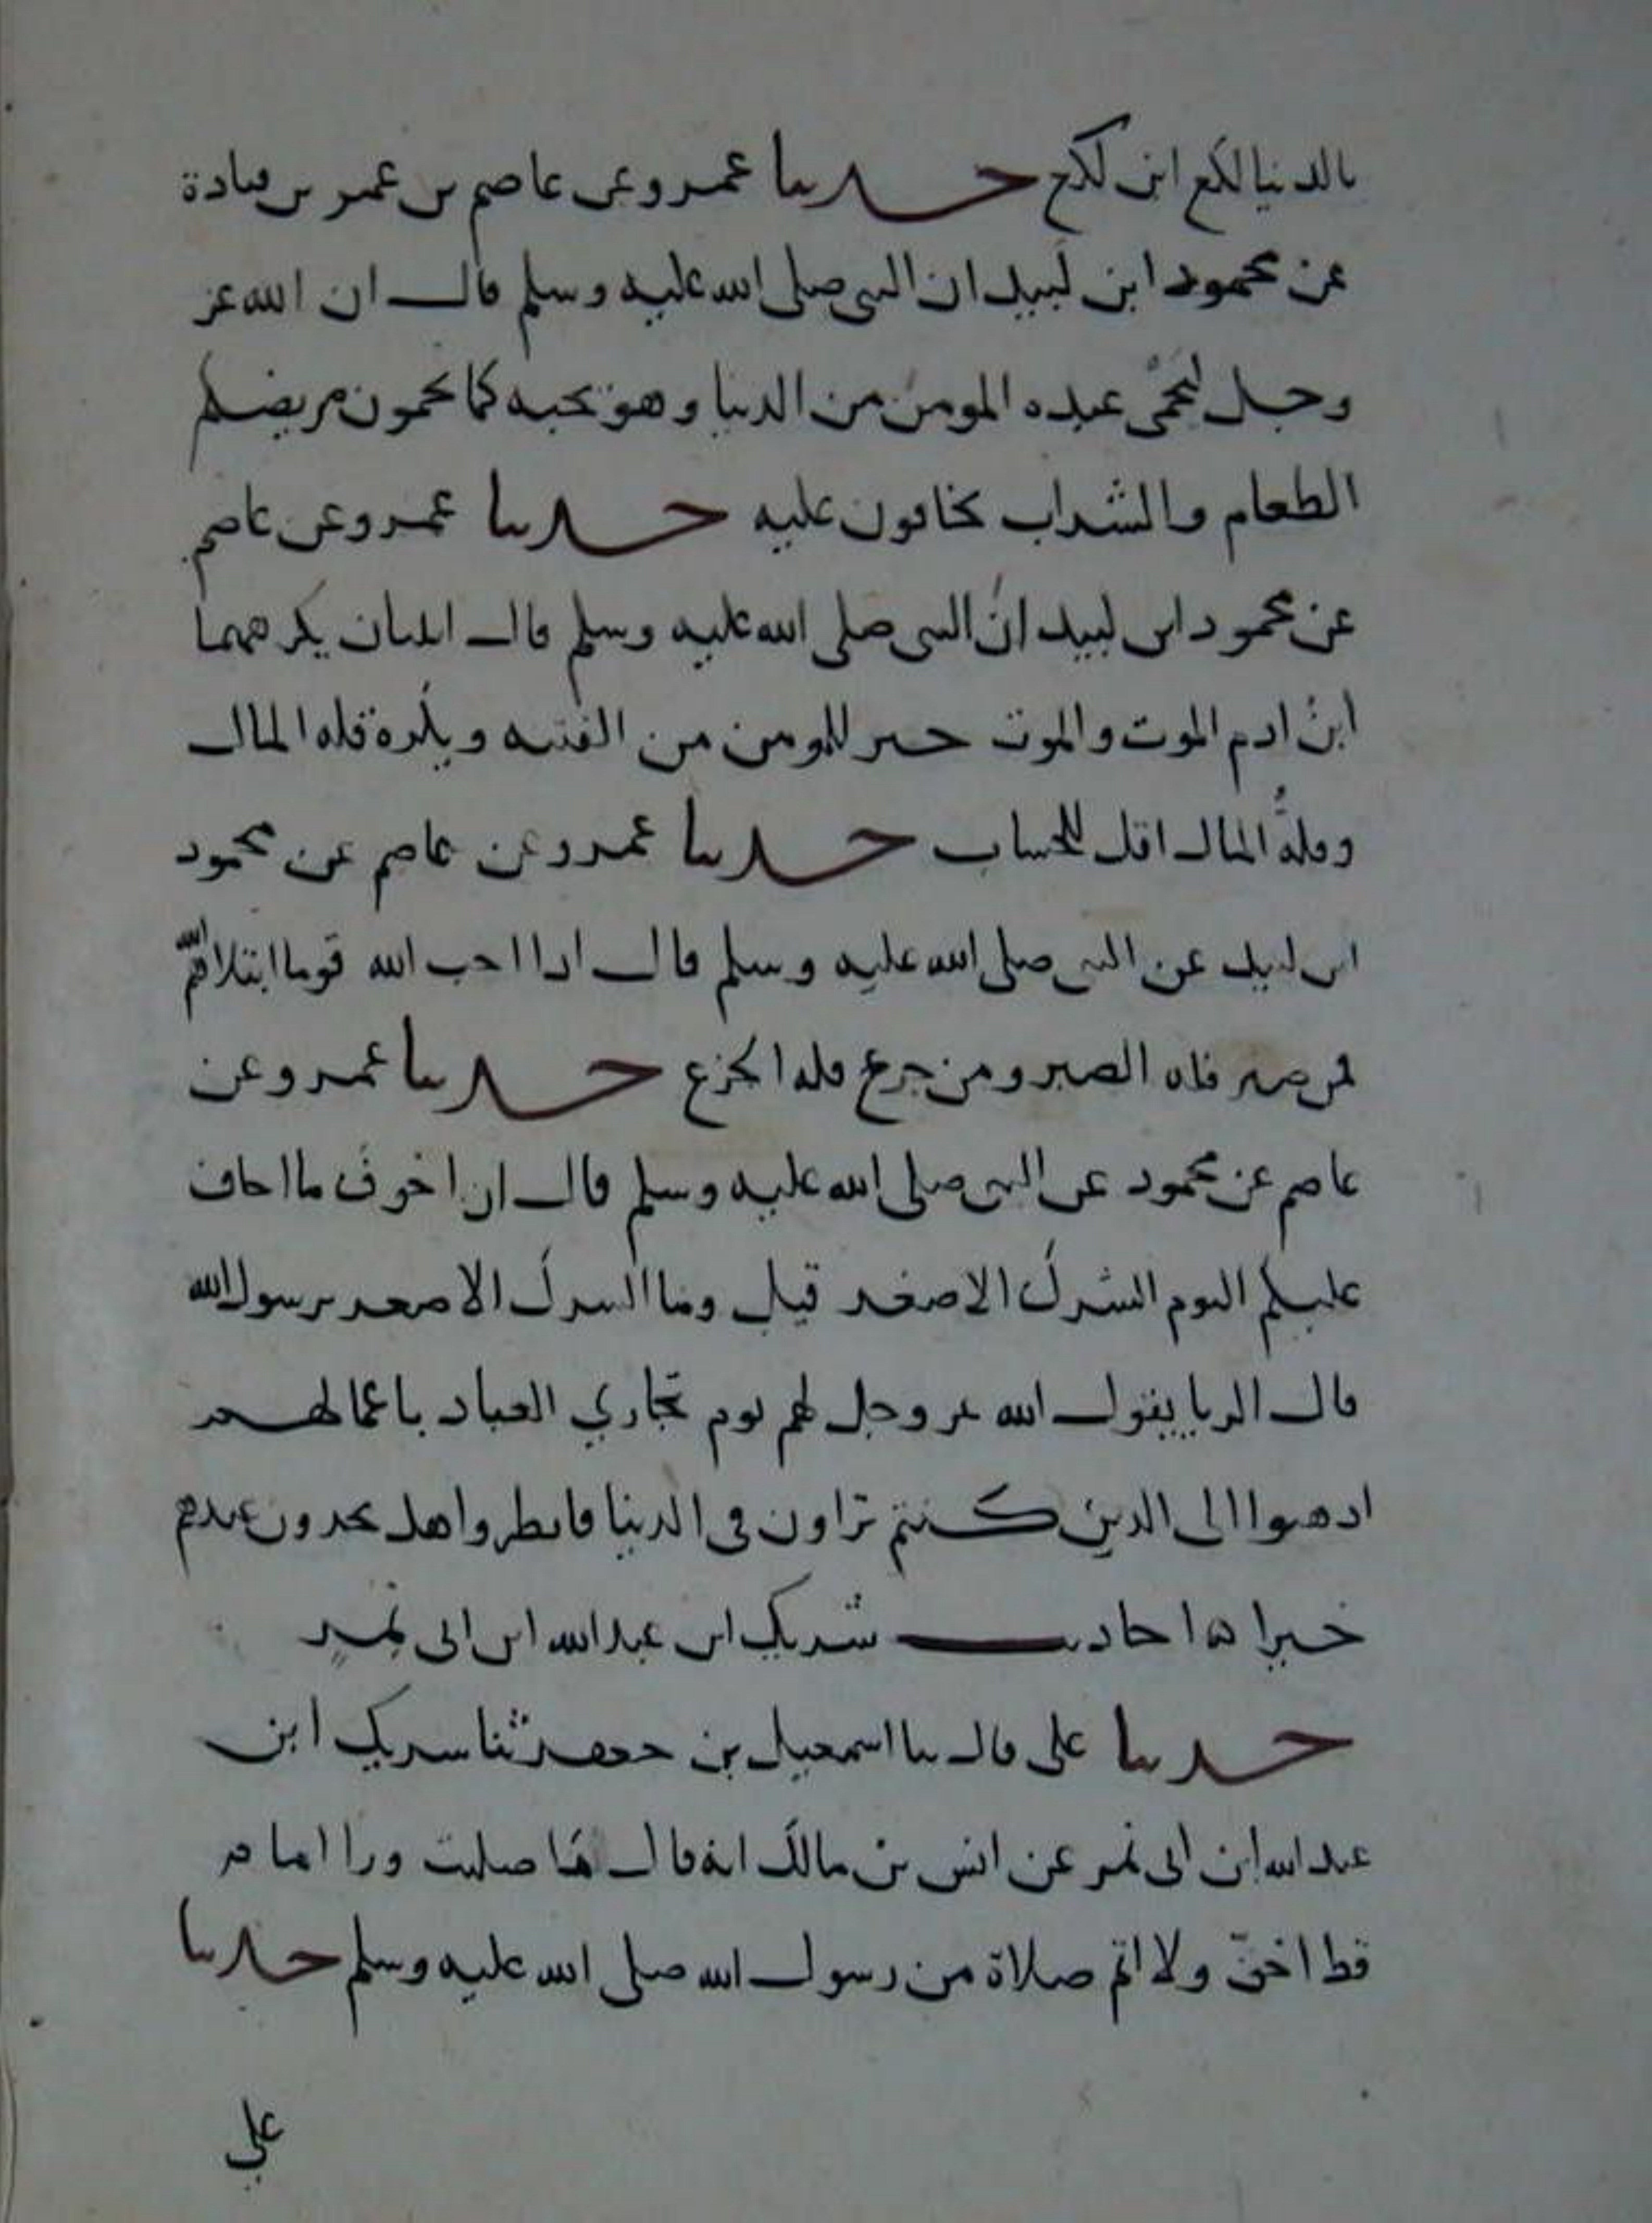 بالدنيا لكع ابن لكع حدثنا عمرو عن عاصم بن عمر بن قتادة
عن محمود ابن لبيد ان النبي صلى الله عليه وسلم قال ان الله عز
وجل ليحمي عبده المومن من الدنيا وهو يحبه كما تحمون مريضكم
الطعام والشراب تخافون عليه حدثنا عمرو عن عاصم
عن محمود ابن لبيد ان النبي صلى الله عليه وسلم قال اثنتان يكرههما
ابن ادم الموت والموت خير للمومن من الفتنه ويكره قله المال
وقلة المال اقل للحساب حدثنا عمرو عن عاصم عن محمود
ابن لبيد عن النبي صلى الله عليه وسلم قال اذا احب الله قوما ابتلاهم الله
فمن صبر فله الصبر ومن جزع فله الجزع حدثنا عمرو عن
عاصم عن محمود عن النبي صلى الله عليه وسلم قال ان اخوف ما اخاف
عليكم اليوم الشرك الاصغر قيل وما الشرك الاصغر يرسول الله
قال الريا يقول الله عز وجل لهم يوم تجازي العباد باعمالهم
اذهبوا الى الذين كنتم تراون في الدنيا فانظروا هل تجدون عندهم
خيرا احاديث شريك ابن عبد الله ابن ابي نمير
حدثنا علي قال ثنا اسمعيل بن جعفر ثنا شريك ابن
عبد الله ابن ابي نمر عن انس بن مالك انه قال ما صليت ورا امام
قط اخف ولا اتم صلاة من رسول الله صلى الله عليه وسلم حدثنا
علي